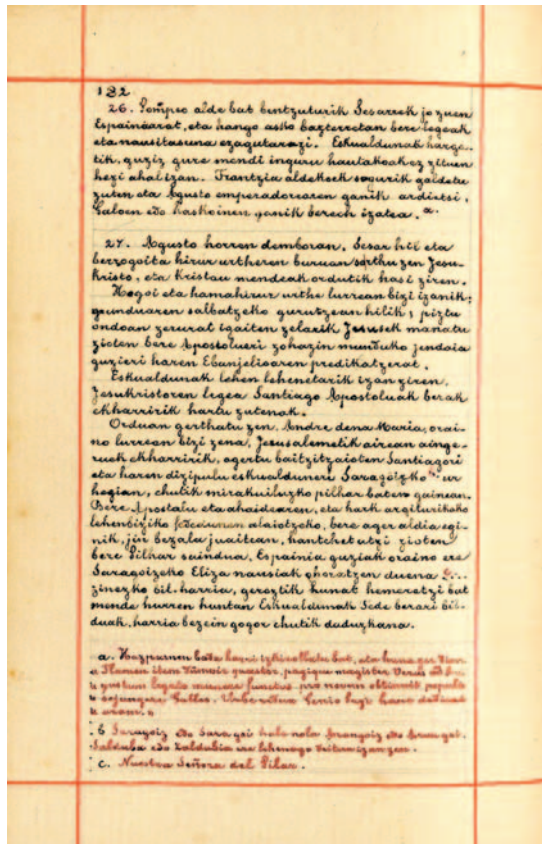 132
26. Pompeo alde bat bentzuturik Sesarrek jo zuen
Espainiarat, eta hango asko bazterretan bere legeak
eta nausitasuna ezagutarazi. Eskualdunak harga-
tik, guziz gure mendi inguru hautakoak ez zituen
hezi ahal izan. Frantzia aldekoek segurik galdetu
zuten eta Agusto emperadorearen ganik ardietsi,
Galoen edo Kaskoinen ganik berech izatea. a.
27. Agusto horren demboran, Sesar hil eta
berzogoita hirur urtheren buruan sorthu zen Jesu-
kristo, eta Kristau mendeak ordutik hasi ziren.
Hogoi eta hamahirur urthe lurrean bizi izanik;
munduaren salbatzeko gurutzean hilik; piztu
ondoan zerurat igaiten zelarik Jesusek manatu
zioten bere Apostolueri zohazin munduko jendaia
guzieri haren Ebanjelioaren predikatzerat.
Eskualdunak lehen lehenetarik izan ziren,
Jesukristoren legea Santiago Apostoluak berak
ekharririk hartu zutenak.
Orduan gerthatu zen, Andre dena Maria, orai-
no lurrean bizi zena, Jerusalemetik airean ainge-
ruek ekharririk, agertu baitzitzaioten Santiagori
eta haren dizipulu eskualduneri Saragoizko ur
hegian, chutik mirakuiluzko pilhar baten gainean.
Bere Apostolu eta ahaidearen, eta hark argiturikako
lehenbiziko fededunen alaiotzeko, bere ager aldia egi-
nik, jin bezala juaitean, hantchet utzi zioten
bere Pilhar saindua, Espainia guziak oraino ere
Saragoizeko Eliza nausiak ohoratzen duena
zinezko bil-harria, geroztik hunat hemeretzi bat
mende hurren huntan Eskualdunak Fede berari bil-
duak, harria bezein gogor chutik daduzkana.
a. Hazparnen bada harri izkiribatu bat,
Flamen item Dumvir quaestor, pagique magister Verus ad Au-
gustum legato munere functus pro novem obtinuit populis
sejungere Gallos. Urbe redux Genio pagi hanc dedicat
aram.
b Saragoiz edo Saragoi hala nola Irangoiz edo Irungoi.
Salduba edo Zaldubia ere lehenago deitua izan zen.
c. Nuestra Señora del Pilar.